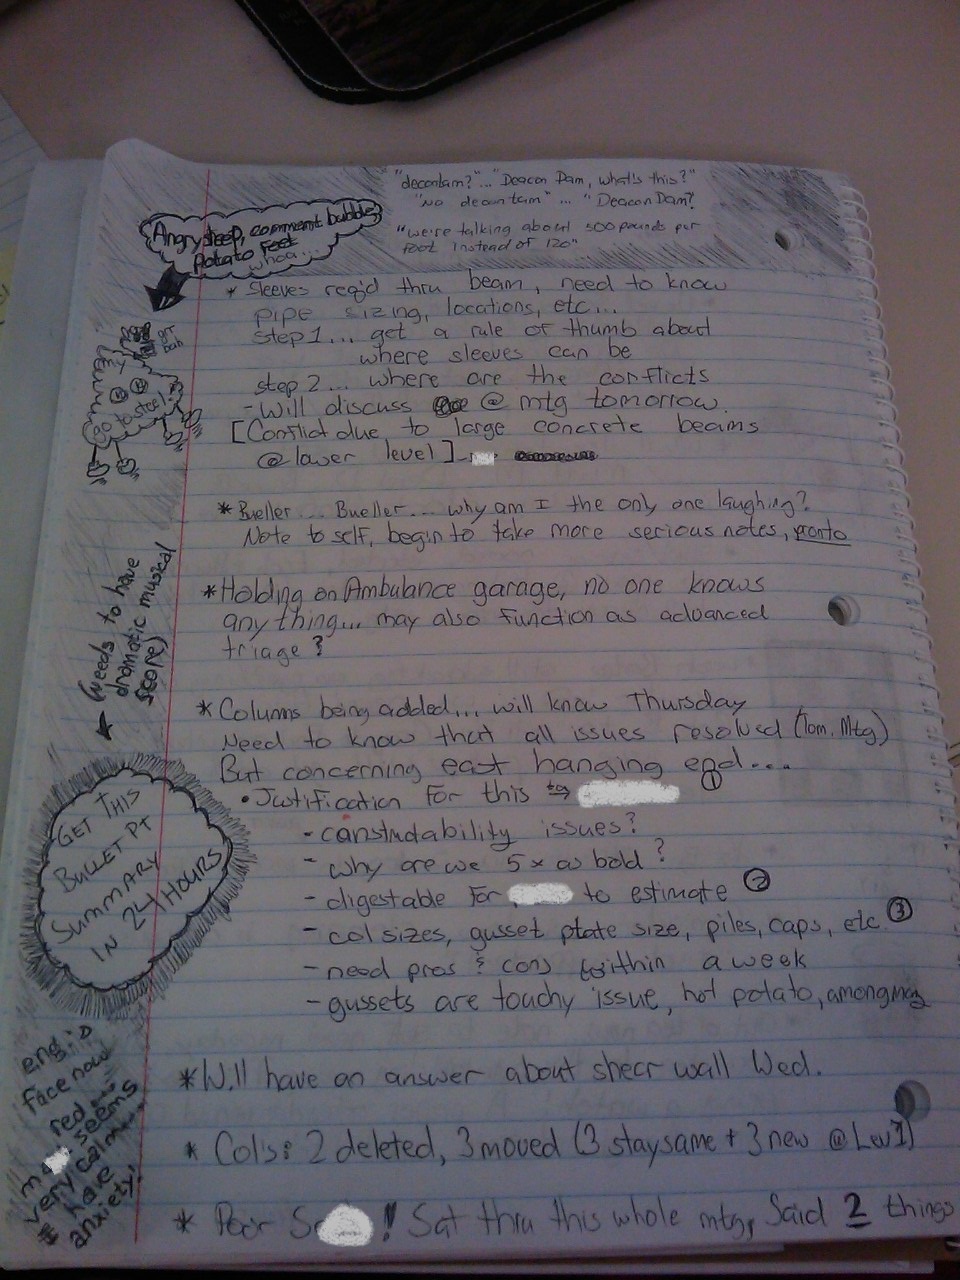 "decontam?"... "Deacon Dam, what's this?"
"No decontam"... "Deacon Dam?
"we're talking about 500 pounds per
foot instead of 120"
Angry sheep, comment bubble,
Potato Feet
whoa...
* Sleeves req'd thru beam, need to know
pipe sizing, locations, etc...
step 1... get a rule of thumb about
where sleeves can be
step 2... where are the conflicts
- Will discuss @ mtg tomorrow.
[Conflict due to large concrete beams
@ lower level]
go to steel!
* Bueller... Bueller... why am I the only one laughing?
Note to self, begin to take more serious notes, pronto
* Holding on Ambulance garage, no one knows
anything... may also function as advanced
triage?
(needs to have
dramatic musical
score)
* Columns being added... will know Thursday
Need to know that all issues resolved (Tom. Mtg)
But concerning east hanging end...
• Justification for this ①
- constructability issues?
- why are we 5x as bold?
- digestable for to estimate ②
- col sizes, gusset plate size, piles, caps, etc. ③
- need pros & cons within a week
- gussets are touchy issue, hot potato, among
GET THIS
BULLET PT
SUMMARY
IN 24 HOURS
* Will have an answer about shear wall Wed.
* Cols: 2 deleted, 3 moved (3 stay same + 3 new @ Lev 1)
* Poor S ! Sat thru this whole mtg, Said 2 things
eng.'s
face now
red
seems
very calm
I have
anxiety!